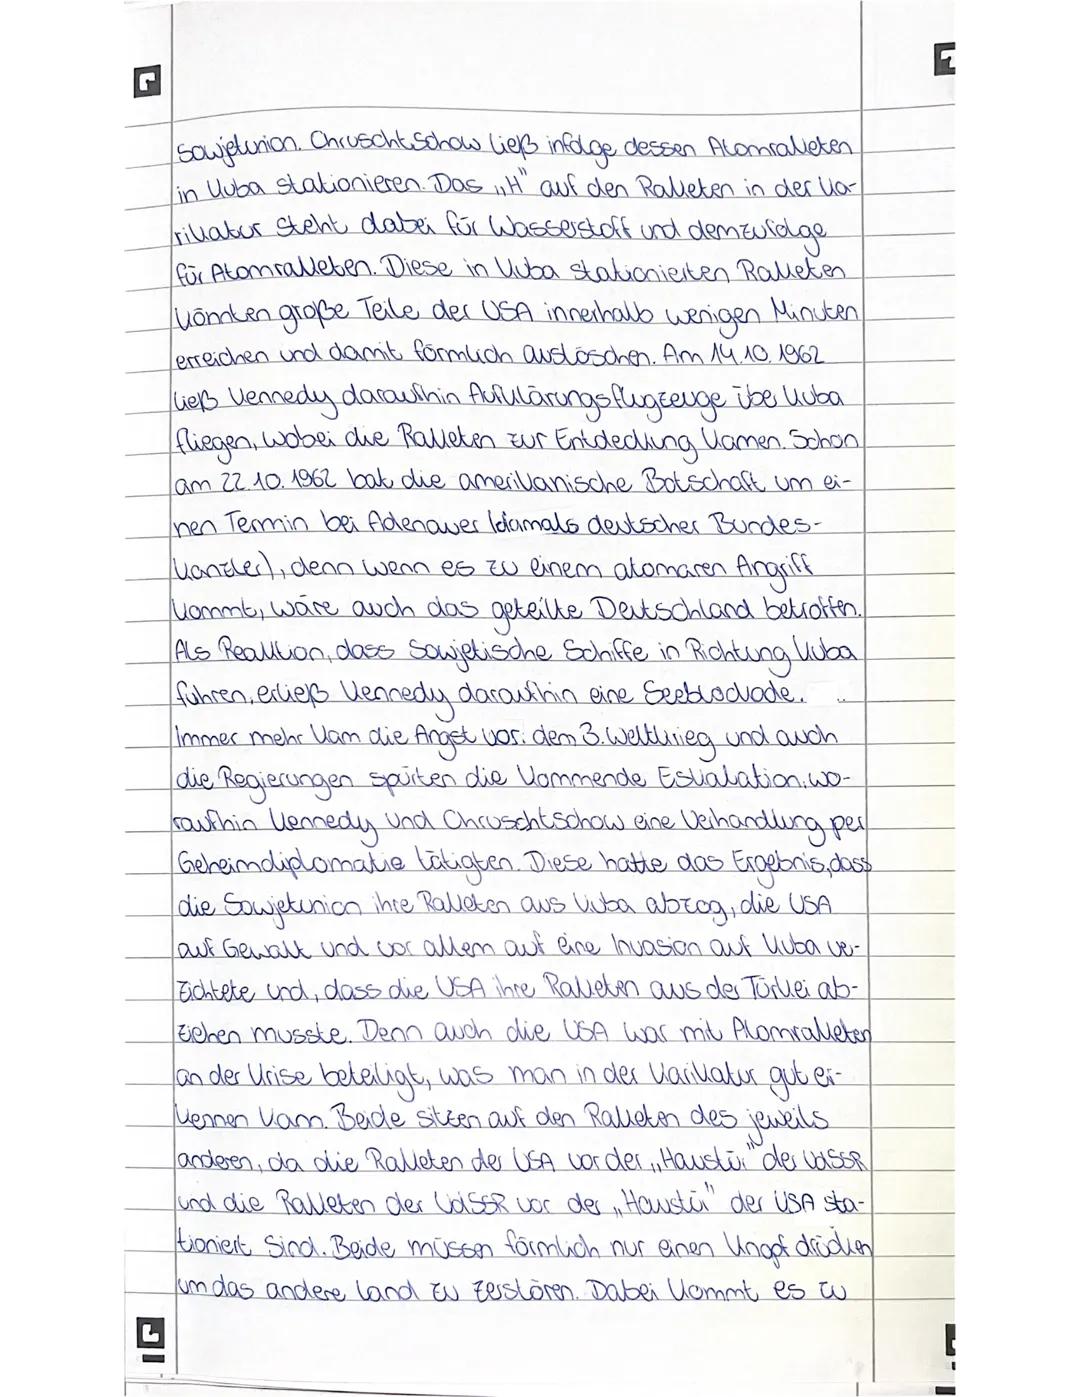 Sowjetunion. Chruschtschow ließ infolge dessen Atomraketen
in Kuba stationieren. Das „H" auf den Raketen in der Ka-
rikatur steht dabei für Wasserstoff und demzufolge
für Atomraketen. Diese in Kuba stationierten Raketen
könnten große Teile der USA innerhalb wenigen Minuten
erreichen und damit förmlich auslöschen. Am 14.10.1962
ließ Kennedy daraufhin Aufklärungsflugzeuge übe Kuba
fliegen, wobei die Raketen zur Entdeckung kamen. Schon
am 22.10.1962 bat die amerikanische Botschaft um ei-
nen Termin bei Adenauer (damals deutscher Bundes-
kanzler), denn wenn es zu einem atomaren Angriff
kommt, wäre auch das geteilte Deutschland betroffen.
Als Reaktion, dass Sowjetische Schiffe in Richtung Kuba
fuhren, erließ Kennedy daraufhin eine Seeblockade.
Immer mehr kam die Angst vor dem 3. Weltkrieg und auch
die Regierungen spürten die kommende Eskalation, wo-
raufhin Kennedy und Chruschtschow eine Verhandlung per
Geheimdiplomatie tätigten. Diese hatte das Ergebnis, dass
die Sowjetunion ihre Raketen aus Kuba abzog, die USA
auf Gewalt und vor allem auf eine Invasion auf Kuba ver-
zichtete und, dass die USA ihre Raketen aus der Türkei ab-
ziehen musste. Denn auch die USA war mit Atomraketen
an der Krise beteiligt, was man in der Karikatur gut er-
kennen kann. Beide sitzen auf den Raketen des jeweils
anderen, da die Raketen der USA vor der „Haustür" der UdSSR
und die Raketen der UdSSR vor der „Haustür" der USA sta-
tioniert Sind. Beide müssen förmlich nur einen Knopf drücken
um das andere Land zu zerstören. Dabei kommt es zu